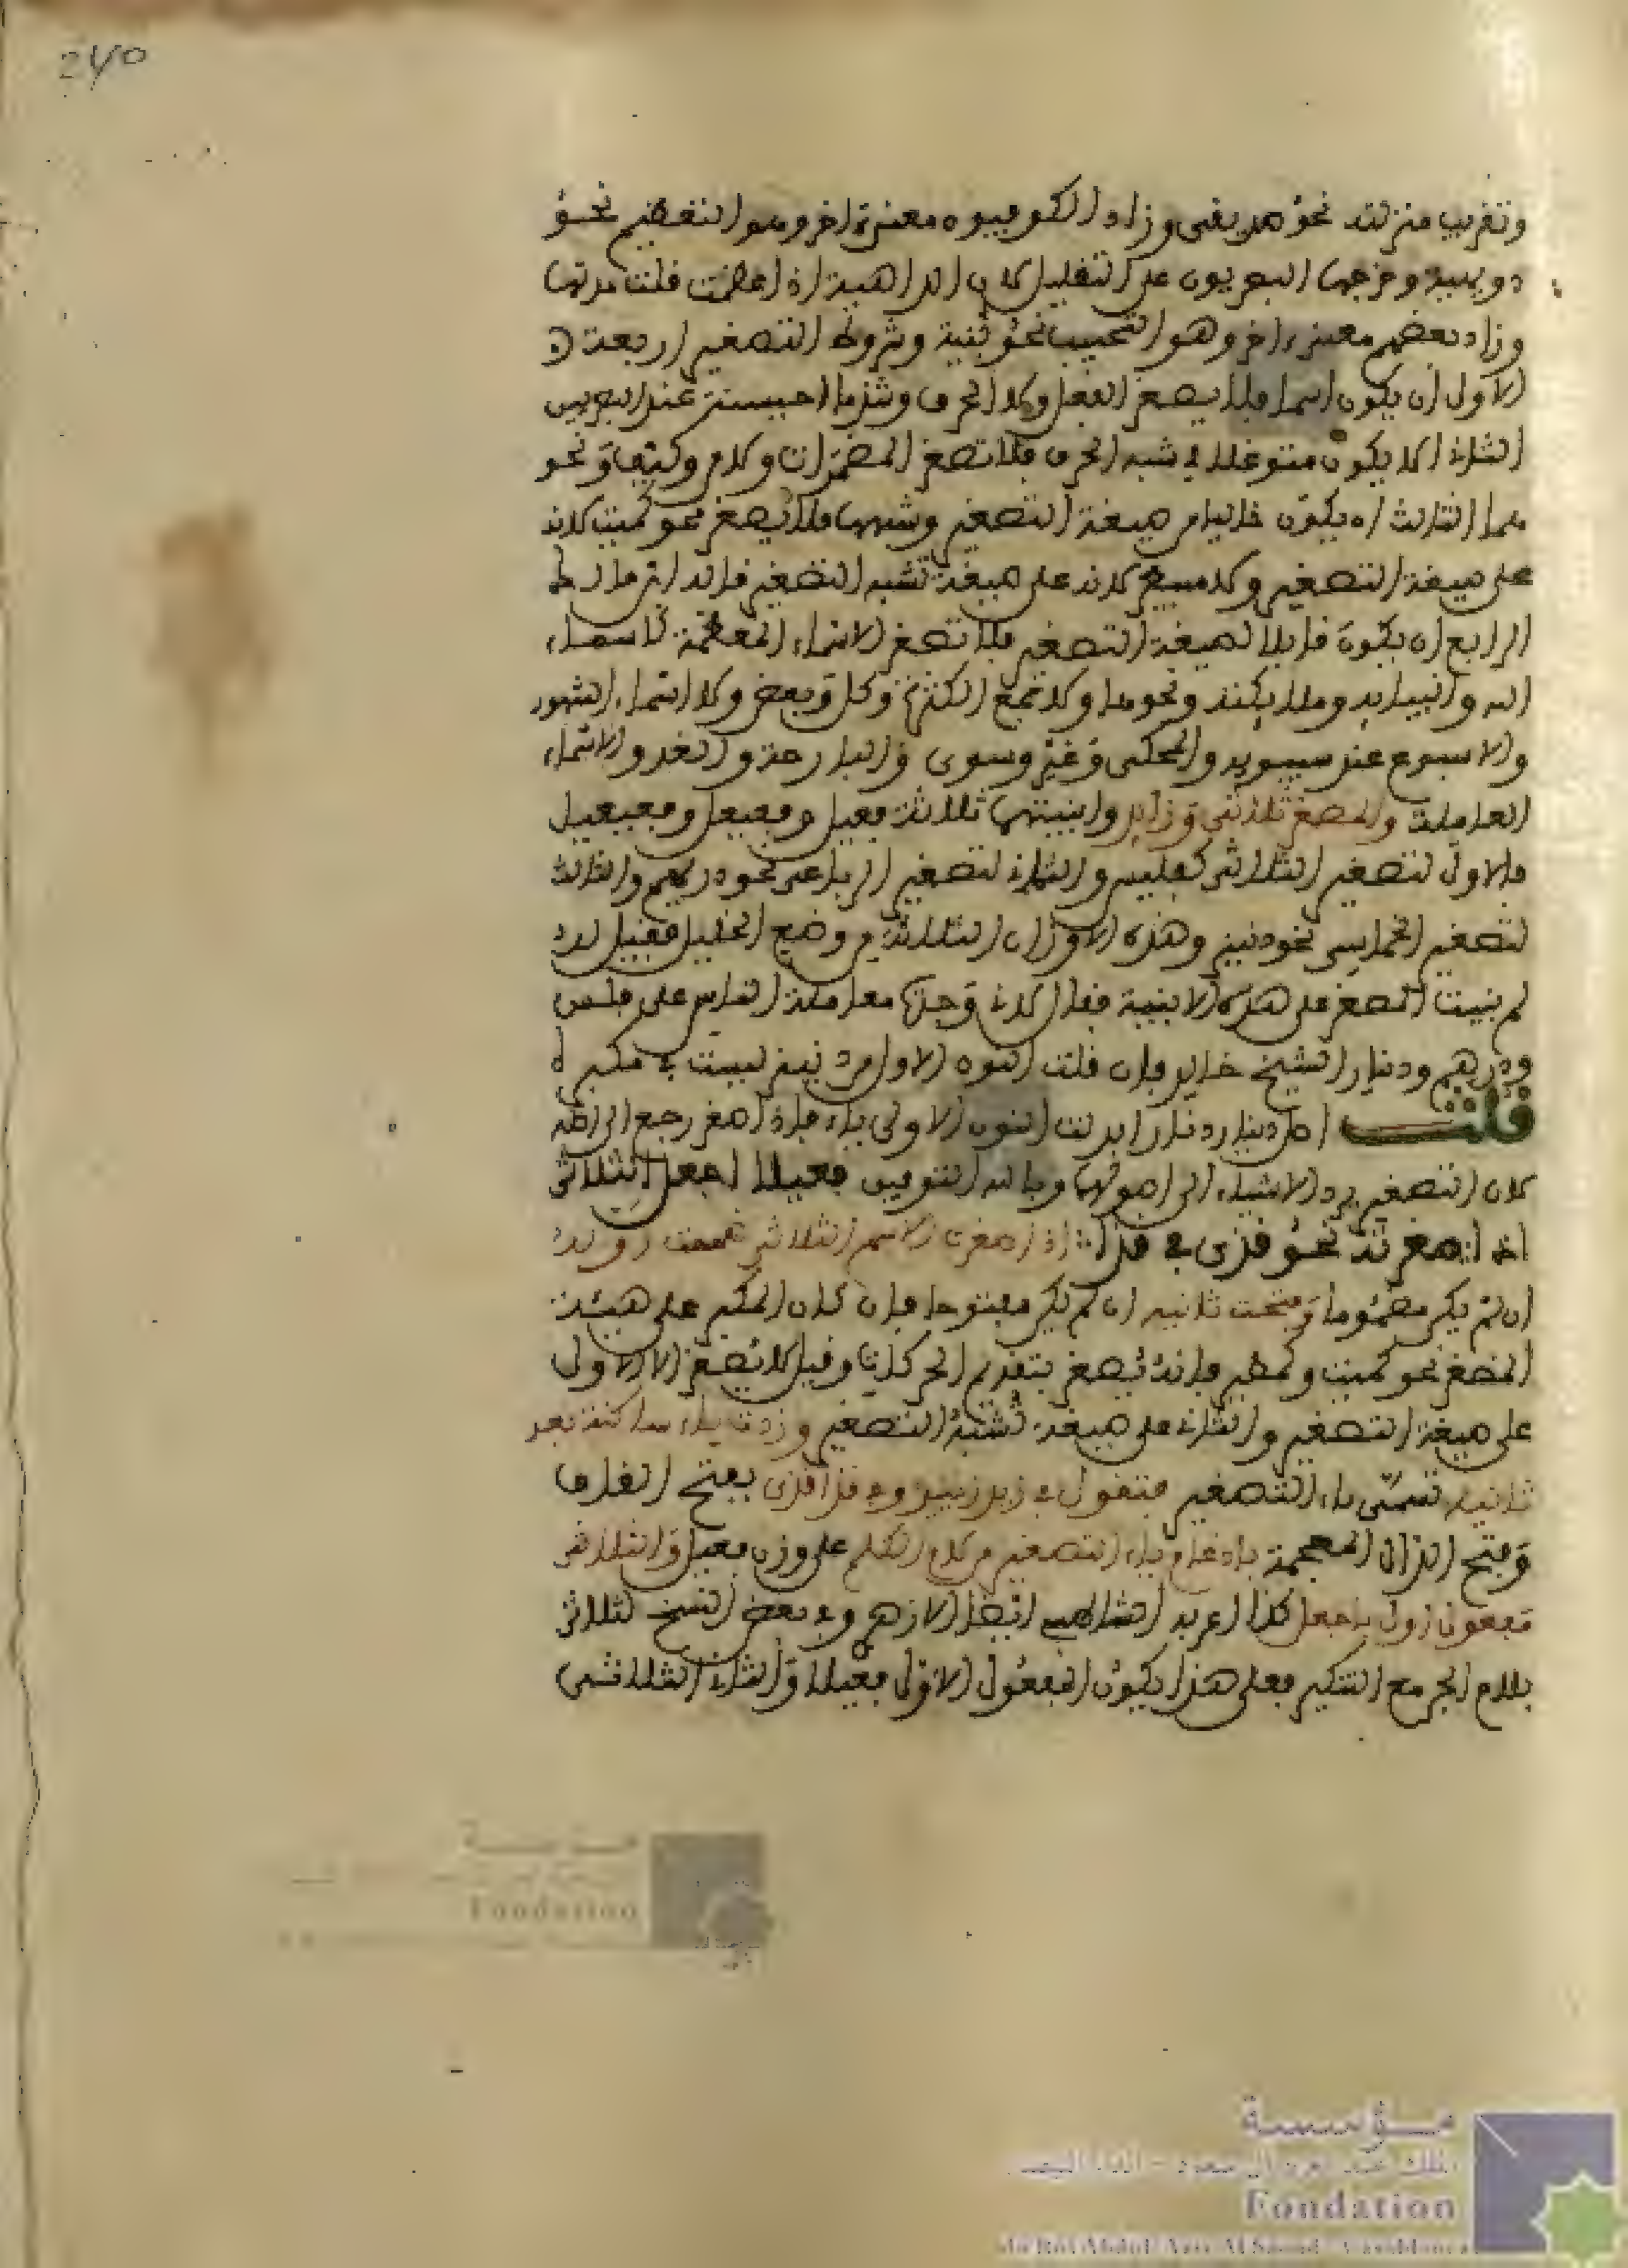 240
وتقريب منزلته نحو صديقي وزاد الكوفيون معنى اخر وهو التعظيم نحو
دويهية وخرجها البصريون على التقليل لان الداهية اذا عظمت قلت مدتها
وزاد بعضهم معنى اخر وهو التحبيب نحو بنية وشروط التصغير اربعة
الاول ان يكون اسما فلا يصغر الفعل ولا الحرف وشذ ما احيسنه عند البصريين
الثاني الا يكون متوغلا في شبه الحرف فلا تصغر المضمرات ولا من وكيف ونحو
هما الثالث ان يكون خاليا من صيغة التصغير وشبهها فلا يصغر نحو كميت لانه
على صيغة التصغير ولا مبيطر لانه على صيغة تشبه التصغير قاله ابن مالك
الرابع ان يكون قابلا لصيغة التصغير فلا تصغر الاسماء المعظمة كاسماء
الله وانبيايه وملايكته ونحوها ولا جمع الكثرة وكل وبعض ولا اسماء الشهور
والاسبوع عند سيبويه والمحكي وغير وسوى والبارحة والغد والاسماء
العاملة والمصغر ثلاثي وزايد وابنيتها ثلاثة فعيل وفعيعل وفعيعيل
فالاول لتصغير الثلاثي كفليس والثاني لتصغير الرباعي نحو دريهم والثالث
لتصغير الخماسي نحو دنينير وهذه الاوزان الثلاثة من وضع الخليل فقيل له
لم بنيت المصغر على هذه الابنية فقال لاني وجدت معاملة الناس على فلس
ودرهم ودينار الشيخ خالد فان قلت النون الاولى من دنينير ليست في مكبره
قلت اصل دينار دنار ابدلت النون الاولى ياء فاذا صغر رجع الى اصله
لان التصغير يرد الاشياء الى اصولها وبالله التوفيق فعيلا اجعل الثلاثي
اذا صغرته نحو قذي في قذا اذا صغرت الاسم الثلاثي ضممت اوله
ان لم يكن مضموما وفتحت ثانيه ان لم يكن مفتوحا فان كان المكبر على هيئة
المصغر نحو كميت و فانه يصغر بتقدير الحركات وقيل لا يصغر لان الاول
على صيغة التصغير والثاني على صيغة تشبه التصغير وزدت ياء ساكنة بعد
ثانيه تسمى ياء التصغير فتقول في زيد زييد وفي قذا قذي بفتح القاف
وفتح الذال المعجمة بادغام ياء التصغير في لام الكلم على وزن فعيل والثلاثي
مفعول اول باجعل كذا اعربه الازهري وفي بعض النسخ لثلاثي
بلام الجر مع التنكير فعلى هذا يكون المفعول الاول فعيلا والثاني الثلاثي
مؤسسة
Fondation
مؤسسة
Fondation
du Roi Abdul-Aziz Al Saoud - Casablanca